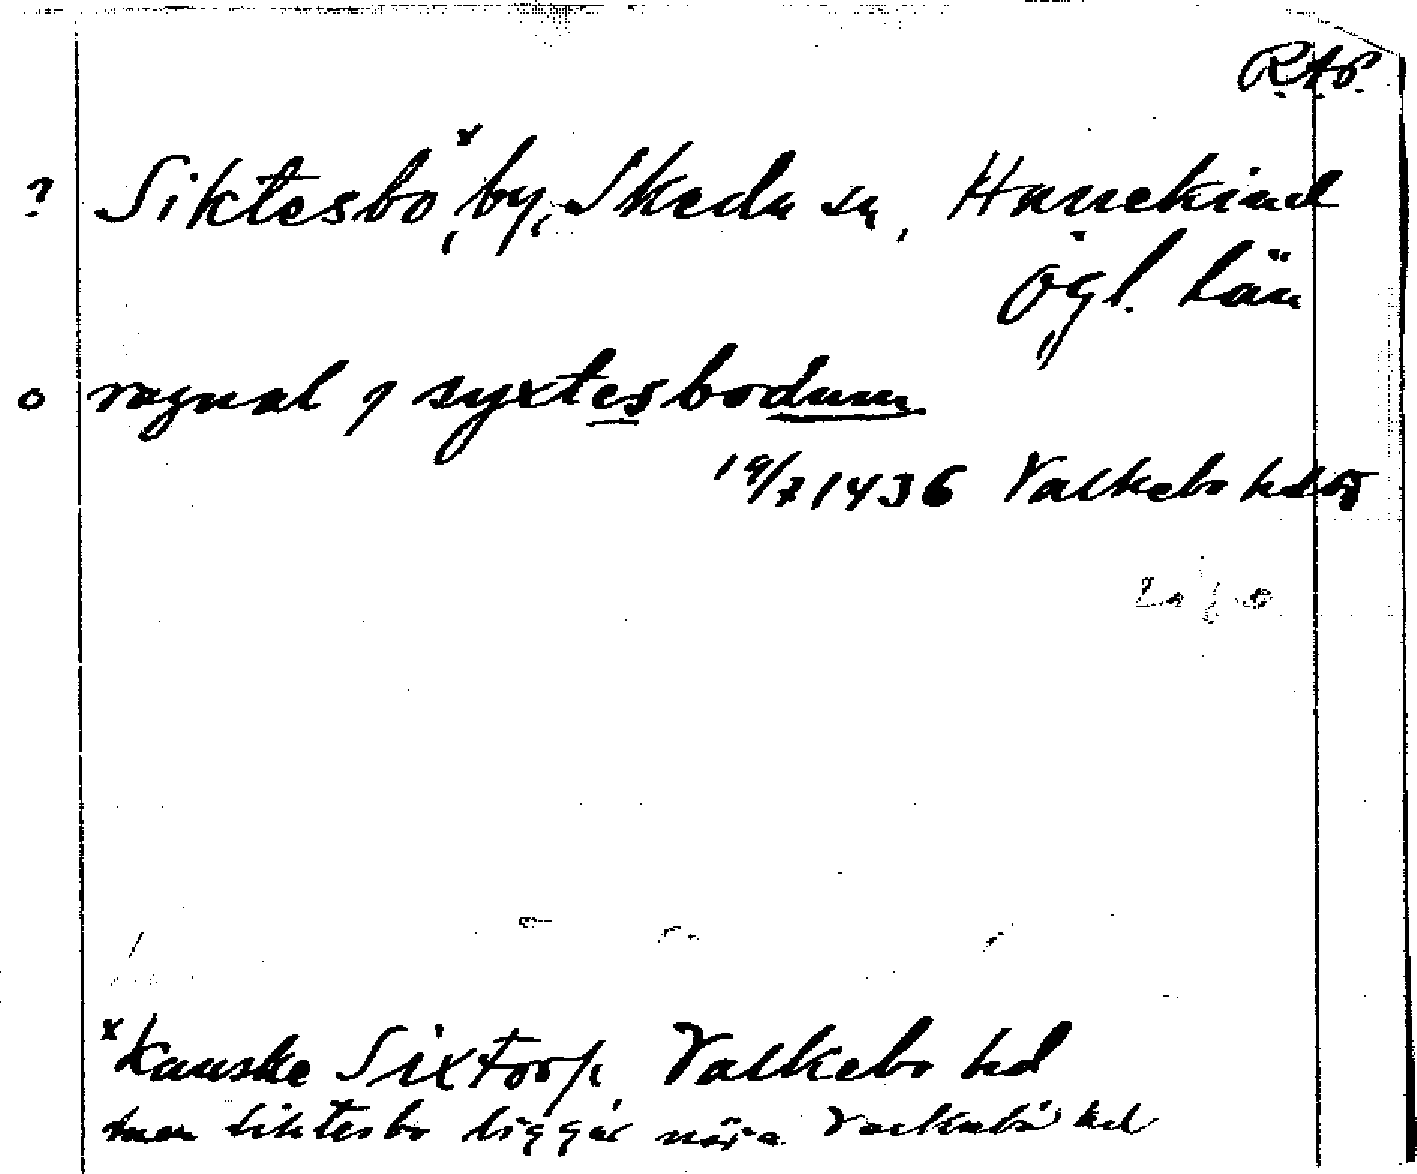 R.A.P.
? Siktesbo,ˣ by, Skeda sn, Hanekind
Ögl. län
o ragnal j syxtesbodum
19/7 1436 Valkebo hd Ög
ˣ Kanske Sixtorp Valkebo hd
men Siktesbo ligger nära Valkebo hd